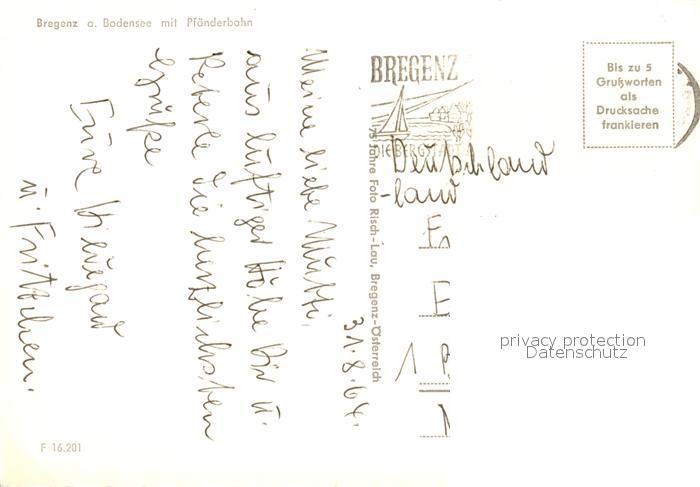 Bregenz a. Bodensee mit Pfänderbahn
31.8.64.
Meine liebe Mutti,
aus luftiger Höhe Dir u.
Peterle die herzlichsten
Grüße
Eure Hildegard
u. Fritzchen.
F 16.201
75 Jahre Foto Risch-Lau, Bregenz-Österreich
BREGENZ
DIE BERGSTADT
Bis zu 5
Grußworten
als
Drucksache
frankieren
Deutschland
-land
E
E
1
privacy protection
Datenschutz